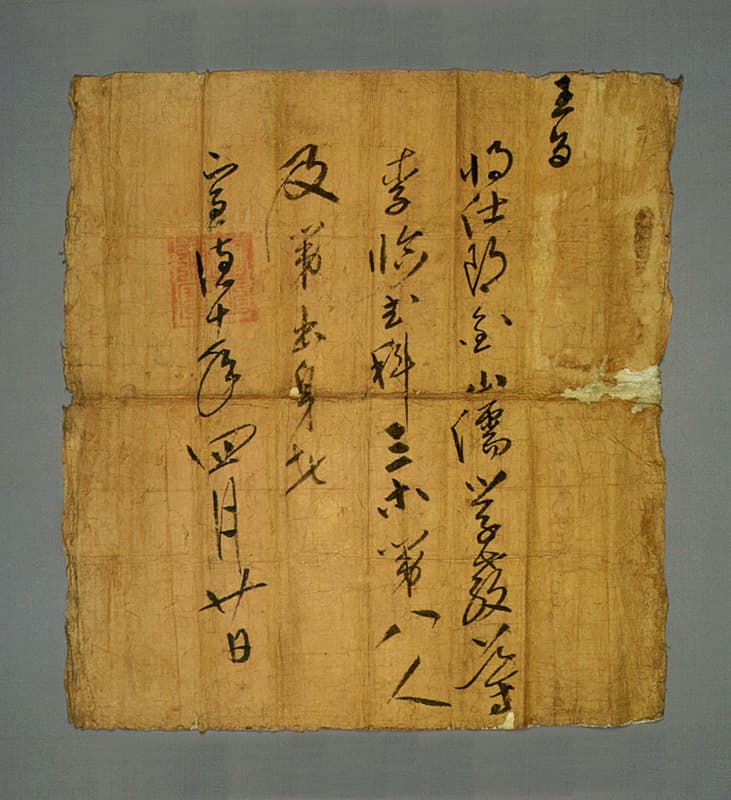 王旨
將仕郎金山儒學教導
李臨武科三等第八人
及第出身者
宣德十年四月廿日